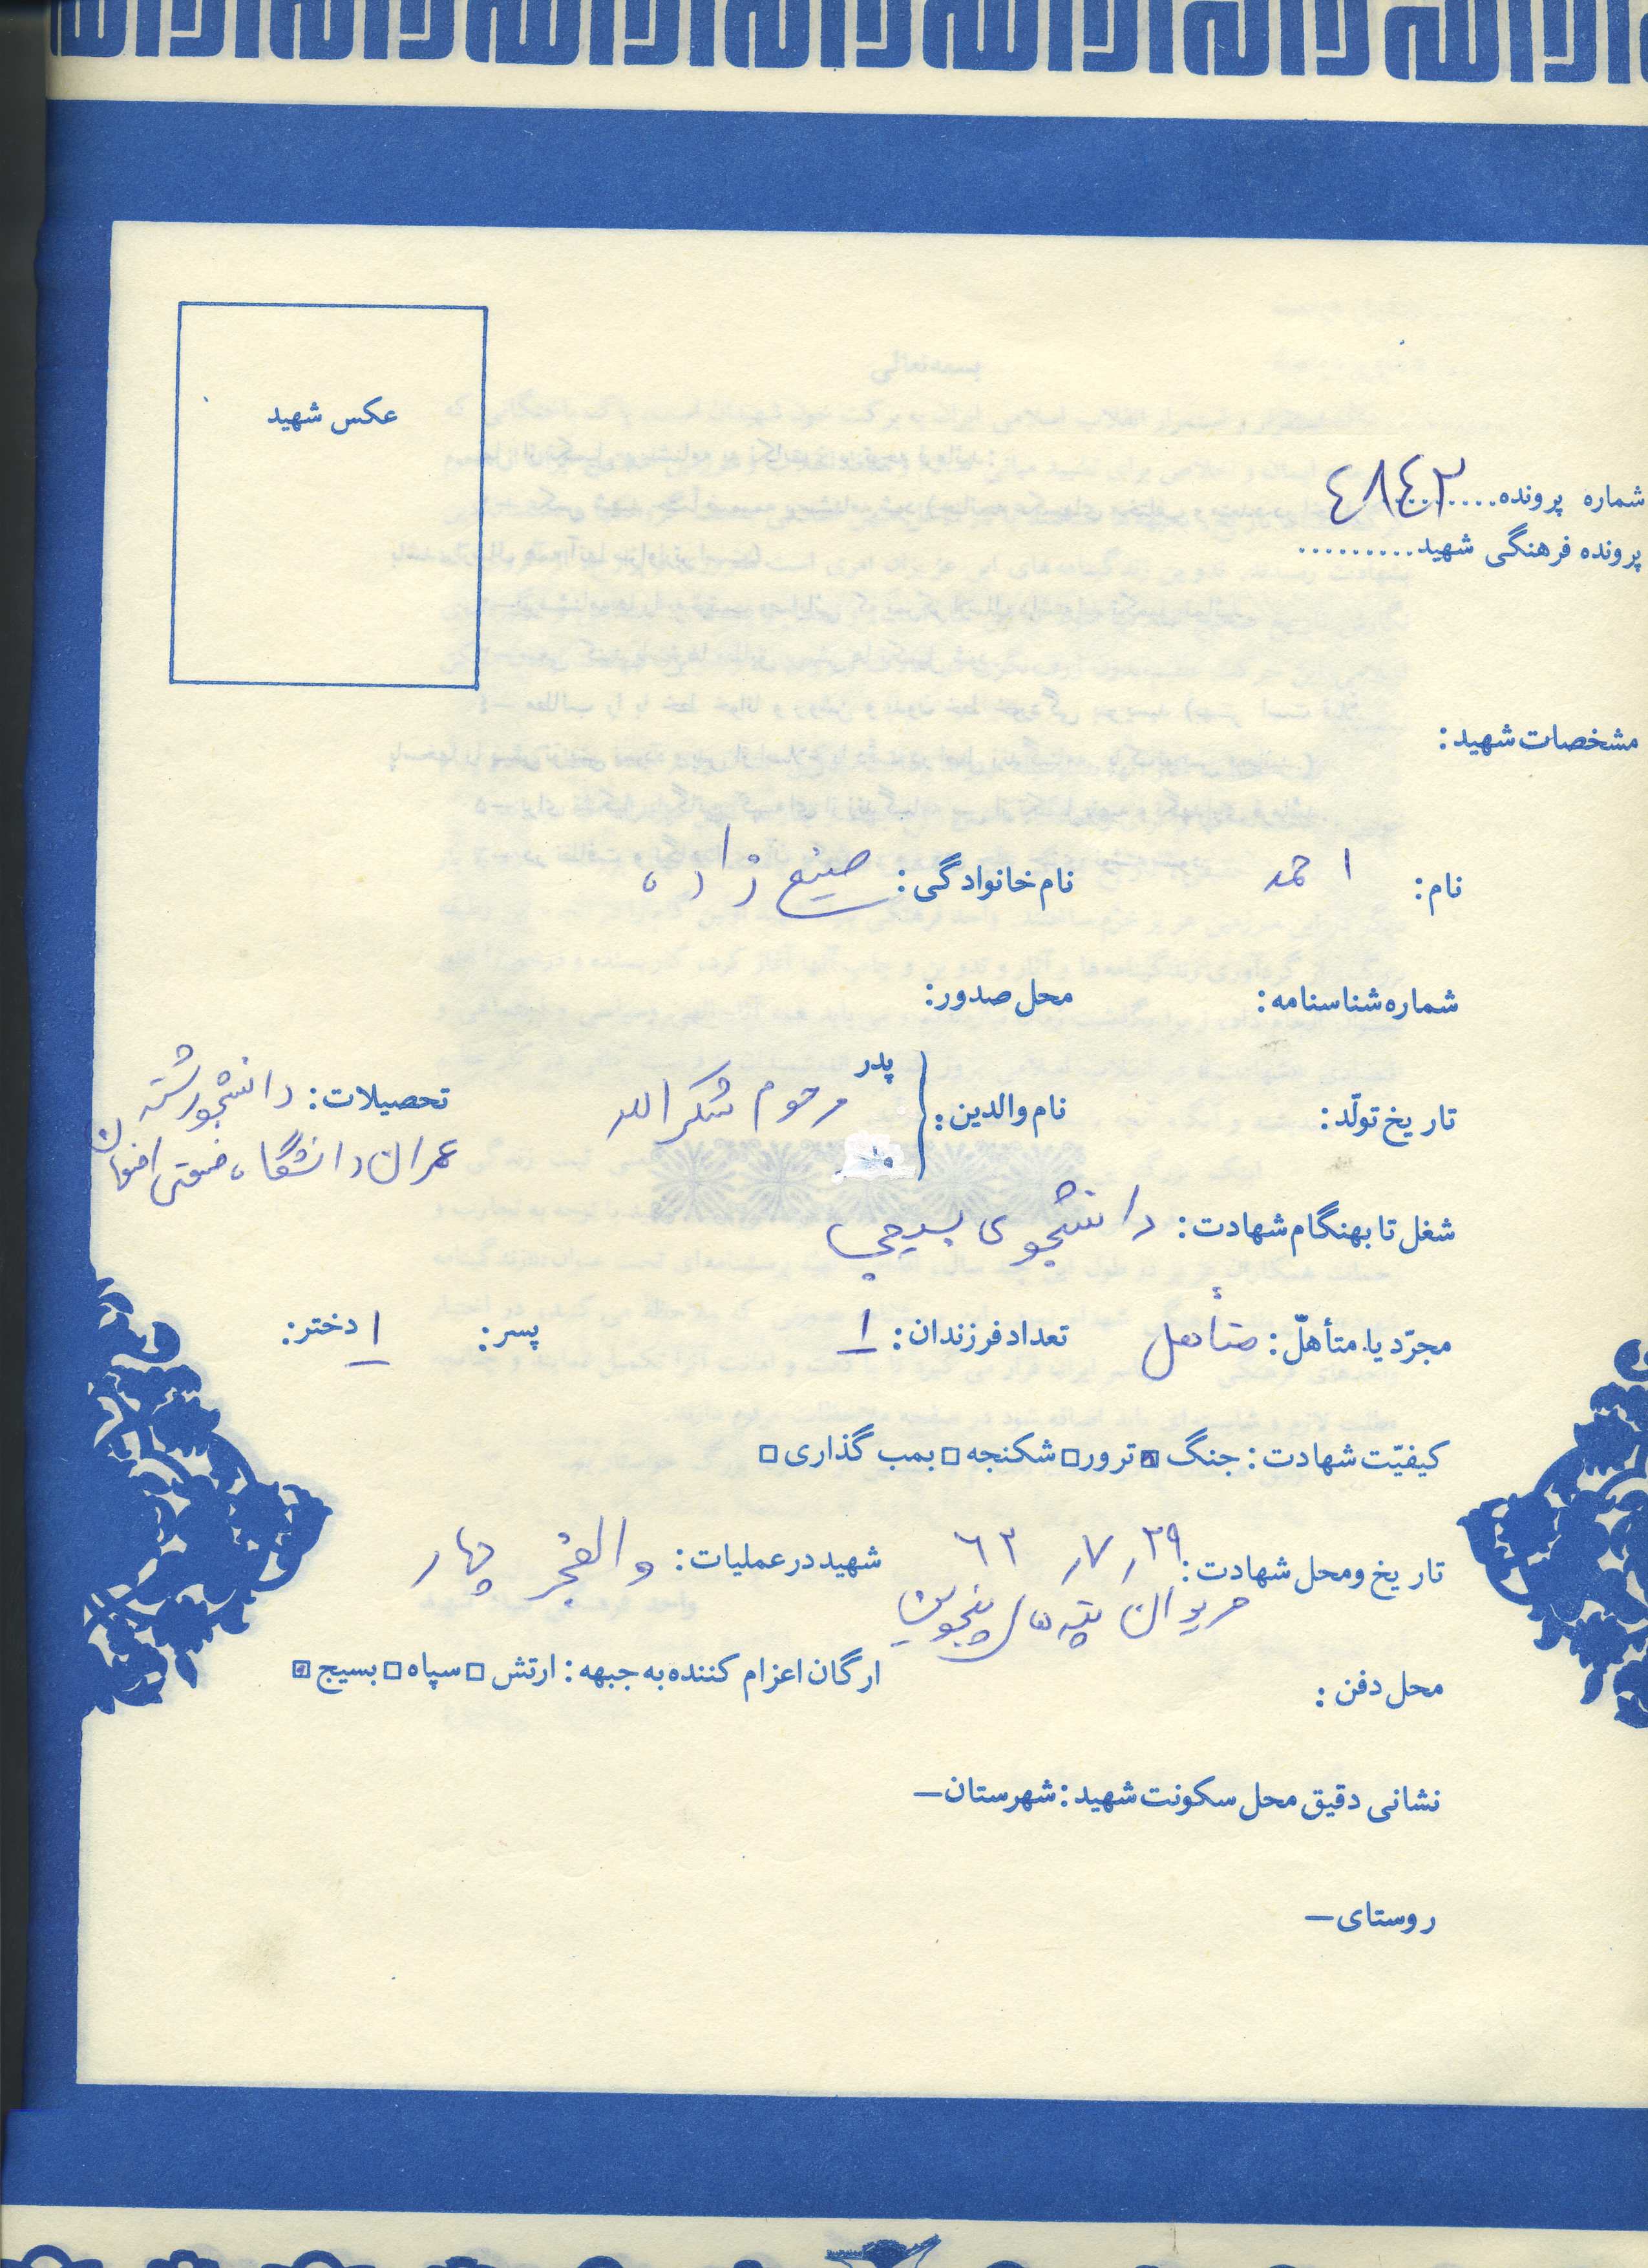 عکس شهید
شماره پرونده.........٤٨٤٢
پرونده فرهنگی شهید..........
مشخصات شهید:
نام: احمد نام خانوادگی: صنیع زاده
شماره شناسنامه: محل صدور:
تاریخ تولّد: نام والدین: پدر مرحوم شکرالله تحصیلات: دانشجو رشته
عمران دانشگاه صنعتی اصفهان
شغل تا بهنگام شهادت: دانشجوی بسیجی
مجرّد یا متأهلّ: متأهل تعداد فرزندان: ۱ پسر: ۱ دختر:
کیفیّت شهادت: جنگ ترور شکنجه بمب گذاری
تاریخ و محل شهادت: ۲۹ ر ۷ ر ٦٢ شهید در عملیات: والفجر چهار
مریوان تپه های پنجوین
محل دفن: ارگان اعزام کننده به جبهه: ارتش سپاه بسیج
نشانی دقیق محل سکونت شهید: شهرستان–
روستای–